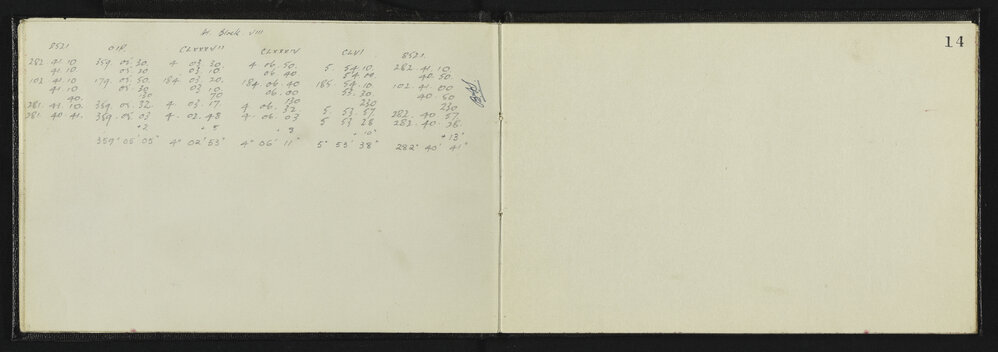 Block VIII
8521 CLXXXVII CLXXXIV CLVI 8521
282 41 10 359 05 30. 4 03 30. 4 06. 50. 5 54 10. 282. 41. 10.
41. 10. 05. 20 03. 10. 06 40 54 00. 40. 50.
102 41 10 179 05. 50. 184 03. 20. 184. 06 40 185 54. 10 102. 41. 00
41. 10 05. 30 03 10 06. 00 53. 30. 40. 50
40. 130 70 130 230 230
281. 41. 10. 359. 05. 32. 4. 03. 17. 4 06. 32 5 53. 57. 282. 40 57.
281. 40 41. 359. 05. 03 4. 02. 48 4. 06. 03 5 53 28 282. 40. 28.
+2 + 5 + 10" + 13"
359° 05' 05" 4° 02' 53" 4° 06' 11" 5° 53' 38" 282° 40' 41"
14